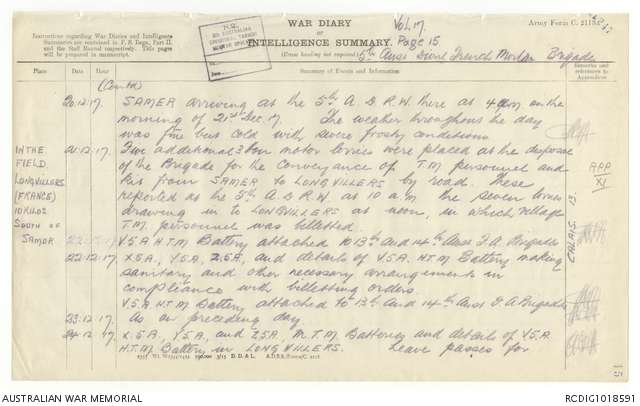 WAR DIARY
or
INTELLIGENCE SUMMARY.
(Erase heading not required.)
Instructions regarding War Diaries and Intelligence
Summaries are contained in F. S. Regs., Part II.
and the Staff Manual respectively. Title pages
will be prepared in manuscript.
Army Form C. 2118.
Vol. 17.
Page 15
5th Aust Divnl Trench Mortar Brigade
Place
Date
Hour
Summary of Events and Information
Remarks and
references to
Appendices
(Contd)
20.12.17. SAMER arriving at the 5th A.D.R.W. there at 4 am on the
morning of 21st Dec. 17. The weather throughout the day
was fine but cold with severe frosty conditions.
IN THE
FIELD
LONGVILLERS
(FRANCE)
10 KILOS
SOUTH OF
SAMER
21.12.17. Five additional 3 ton motor lorries were placed at the disposal
of the Brigade for the conveyance of T.M. personnel and
kits from SAMER to LONGVILLERS by road. These
reported at the 5th A.D.R.W. at 10 a.m. the seven lorries
drawing in to LONGVILLERS at noon, in which village
T.M. personnel was billetted.
APP
XI
CALAIS 13
22.12.17 V5A H.T.M Battery attached to 13th and 14th Aust F.A. Brigades
22.12.17 X5A, Y5A, Z5A, and details of V5A. H.T.M Battery making
sanitary and other necessary arrangements in
compliance with billetting orders.
V5A. H.T.M Battery attached to 13th and 14th Aust F.A Brigades
23.12.17 As on preceding day
24.12.17. X.5A, Y5A, and Z5A, M.T.M Batteries and details of V5A.
H.T.M Battery in LONGVILLERS. Leave passes for
AUSTRALIAN WAR MEMORIAL
RCDIG1018591